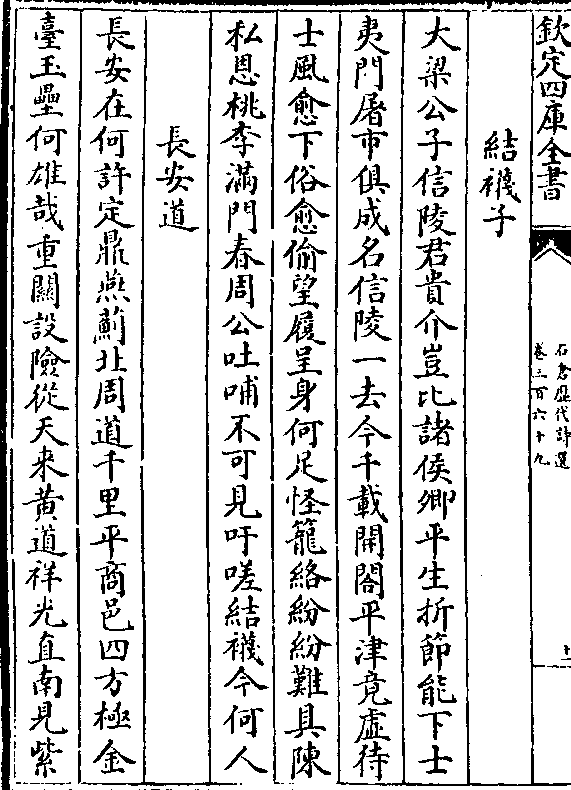 欽定四庫全書
石倉歷代詩選
卷三百六十九
十二
結襪子
大梁公子信陵君貴介豈比諸侯卿平生折節能下士
夷門屠市俱成名信陵一去今千載開閤平津竟虛待
士風愈下俗愈偷望履呈身何足怪籠絡紛紛難具陳
私恩桃李滿門春周公吐哺不可見吁嗟結襪今何人
長安道
長安在何許定鼎燕薊北周道千里平商邑四方極金
臺玉壘何雄哉重關設險從天来黄道祥光直南見紫